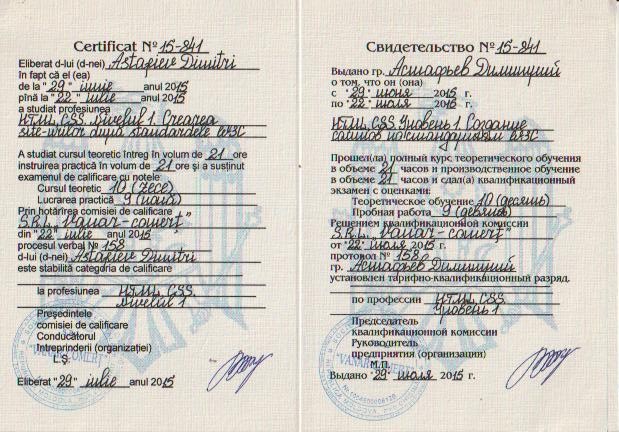 Certificat № 15-841
Eliberat d-lui (d-nei) Astafiev Dimitri
în fapt că el (ea)
de la "29" iunie anul 2015
pînă la "22" iulie anul 2015
a studiat profesiunea
HTML, CSS. Nivelul 1. Crearea
site-urilor după standardele W3C
A studiat cursul teoretic întreg în volum de 21 ore
instruirea practică în volum de 21 ore și a susținut
examenul de calificare cu notele:
Cursul teoretic 10 (zece)
Lucrarea practică 9 (nouă)
Prin hotărîrea comisiei de calificare
S.R.L. "Vanar-comerț"
din "22" iulie anul 2015
procesul verbal № 158
d-lui (d-nei) Astafiev Dimitri
este stabilită categoria de calificare
la profesiunea HTML, CSS.
Nivelul 1
Președintele
comisiei de calificare
Conducătorul
întreprinderii (organizației)
L.Ș.
Eliberat "29" iulie anul 2015
Свидетельство № 15-841
Выдано гр. Астафьев Димитрий
о том, что он (она)
с "29" июня 2015 г.
по "22" июля 2015 г.
HTML, CSS. Уровень 1. Создание
сайтов по стандартам W3C
Прошел(ла) полный курс теоретического обучения
в объеме 21 часов и производственное обучение
в объеме 21 часов и сдал(а) квалификационный
экзамен с оценками:
Теоретическое обучение 10 (десять)
Пробная работа 9 (девять)
Решением квалификационной комиссии
S.R.L. "Vanar-comerț"
от "22" июля 2015 г.
протокол № 158
гр. Астафьев Димитрий
установлен тарифно-квалификационный разряд.
по профессии HTML, CSS.
Уровень 1
Председатель
квалификационной комиссии
Руководитель
предприятия (организации)
М.П.
Выдано "29" июля 2015 г.